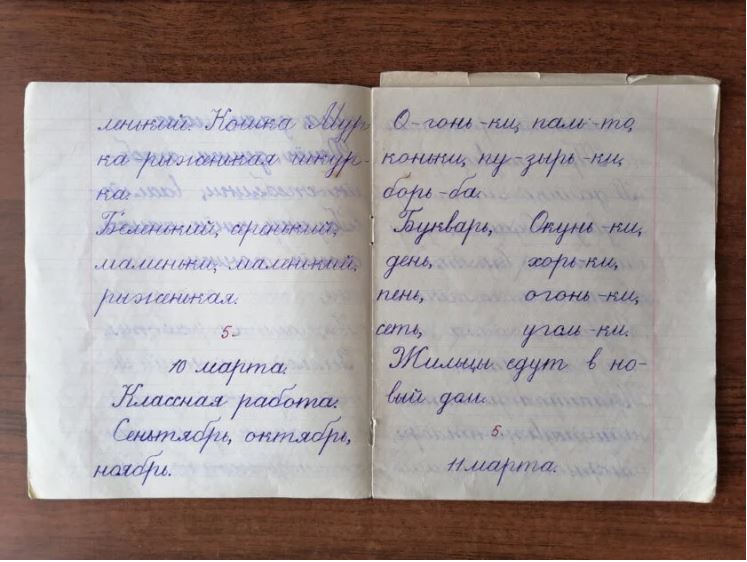 ленький. Кошка Мур
ка рыжанькая шкур-
ка.
Беленький, аренький,
маменьки, маленький,
рыжанькая.
5.
10 марта.
Классная работа.
Сеньтябрь, октябрь,
ноябрь.
О-гонь-ки, паль-то,
коньки, пу-зырь-ки,
борь-ба.
Букварь, Окунь-ки,
день, хорь-ки,
пень, огонь-ки,
сеть, уголь-ки.
Жильцы едут в но-
вый дом.
5.
11 марта.